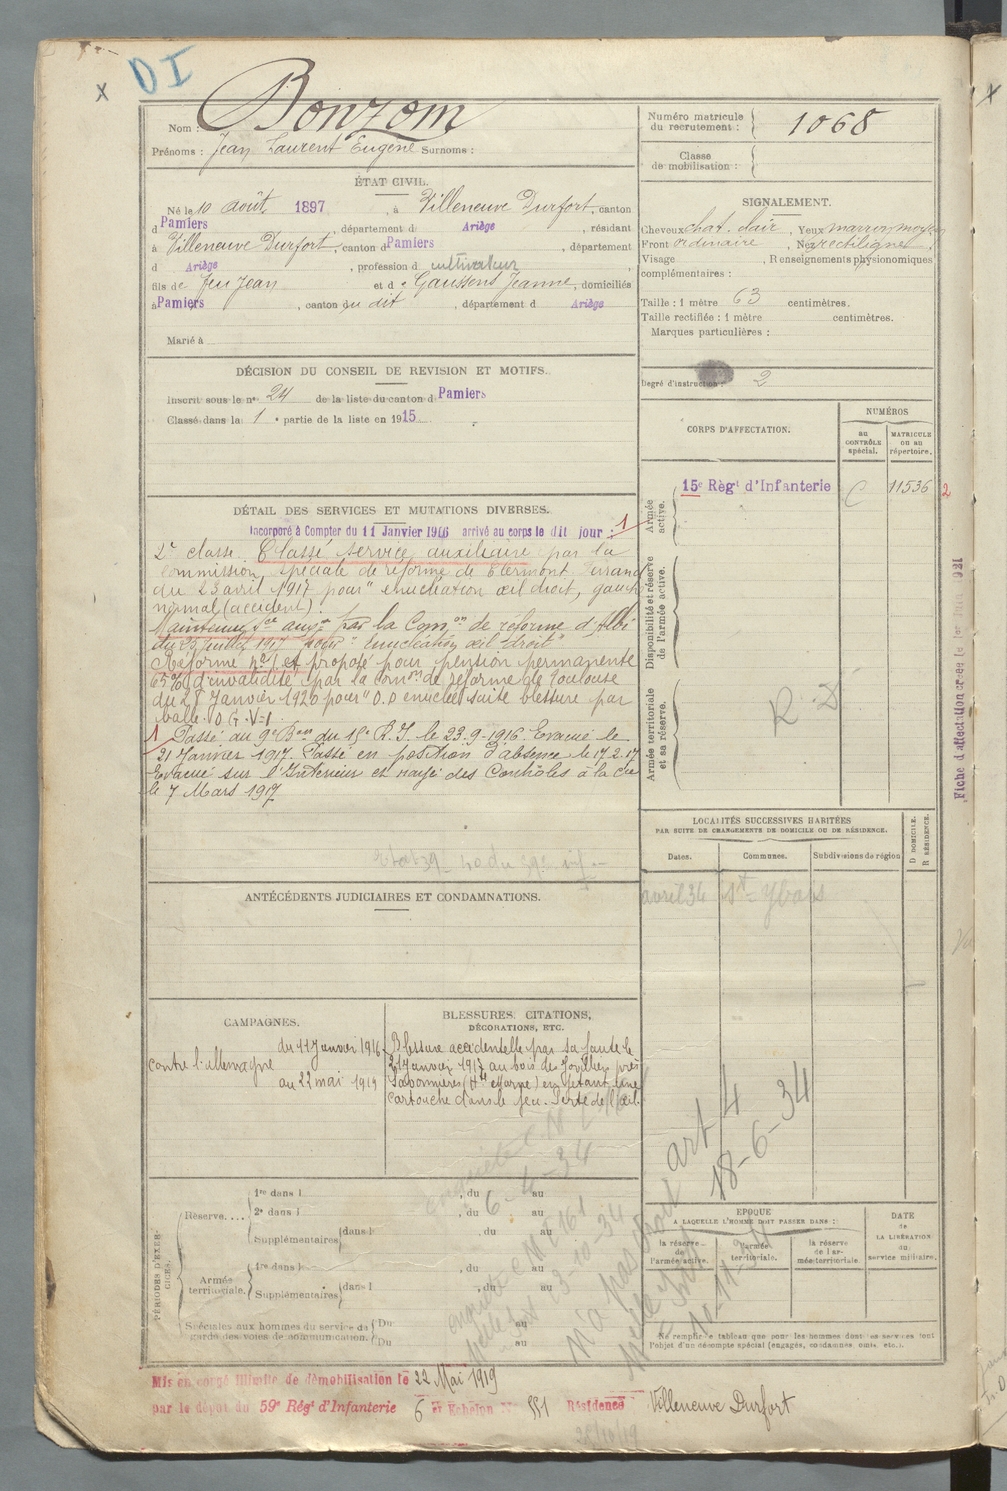 X
DI
Nom : Bonzom
Prénoms : Jean Laurent Eugène Surnoms :
Numéro matricule du recrutement : 1068
Classe de mobilisation :
ÉTAT CIVIL.
Né le 10 août 1897, à Villeneuve Durfort, canton
d Pamiers, département d Ariège, résidant
à Villeneuve Durfort, canton d Pamiers, département
d Ariège, profession d cultivateur
fils de feu Jean et d e Gaussens Jeanne, domiciliés
à Pamiers, canton du dit, département d Ariège
Marié à
SIGNALEMENT.
Cheveux chat. clair, Yeux marron moyen
Front ordinaire, Nez rectiligne
Visage , Renseignements physionomiques
complémentaires :
Taille : 1 mètre 63 centimètres.
Taille rectifiée : 1 mètre centimètres.
Marques particulières :
Degré d'instruction : 2
DÉCISION DU CONSEIL DE REVISION ET MOTIFS.
Inscrit sous le n° 24 de la liste du canton d Pamiers
Classé dans la 1 e partie de la liste en 1915
CORPS D'AFFECTATION.
NUMÉROS
au CONTRÔLE spécial.
MATRICULE ou au répertoire.
Armée active.
15e Régt d'Infanterie
11536
2
Disponibilité et réserve de l'armée active.
Armée territoriale et sa réserve.
R D
Fiche d'affectation créée le 1er Juin 1921
DÉTAIL DES SERVICES ET MUTATIONS DIVERSES.
Incorporé à Compter du 11 Janvier 1916 arrivé au corps le dit jour : 1
2e classe. Classé service auxiliaire par la
Commission spéciale de réforme de Clermont Ferrand
du 23 avril 1917 pour "enucléation œil droit, gauche
normal (accident).
Maintenu sce auxre par la Comon de réforme d'Albi
du 23 juillet 1917 pour "Enucléation œil droit"
Réformé n° 1 et proposé pour pension permanente
65% d'invalidité par la comon de réforme de Toulouse
du 28 Janvier 1920 pour "O.D enucléé suite blessure par
balle. O.G. V=1.
1 Passé au 9e Bon du 15e R.I. le 23-9-1916. Evacué le
21 Janvier 1917. Passé en position d'absence le 17.2.17
Evacué sur l'Intérieur et rayé des Contrôles à la Cie
le 7 Mars 1917
LOCALITÉS SUCCESSIVES HABITÉES
PAR SUITE DE CHANGEMENTS DE DOMICILE OU DE RÉSIDENCE.
Dates.
Communes.
Subdivisions de région
D DOMICILE.
R RÉSIDENCE.
avril 34 St-Ybars
ANTÉCÉDENTS JUDICIAIRES ET CONDAMNATIONS.
CAMPAGNES.
contre l'allemagne
du 11 Janvier 1916
au 22 mai 1919
BLESSURES, CITATIONS,
DÉCORATIONS, ETC.
Blessure accidentelle par sa faute le
21 Janvier 1917 au bois des Jovilliers près
Savonnières (Hte Marne) en jetant une
cartouche dans le feu. Perte de l'œil.
art 4
18-6-34
6-4-34
PÉRIODES D'EXERCICES.
Réserve....
1re dans l , du au
2e dans l , du au
Supplémentaires dans l , du au
Armée territoriale.
1re dans l , du au
Supplémentaires dans l , du au
Spéciales aux hommes du service de garde des voies de communication.
Du au
Du au
ÉPOQUE
A LAQUELLE L'HOMME DOIT PASSER DANS :
la réserve de l'armée active.
l'armée territoriale.
la réserve de l'armée territoriale.
DATE de LA LIBÉRATION du service militaire.
Ne remplir ce tableau que pour les hommes dont les services font
l'objet d'un décompte spécial (engagés, condamnés, omis, etc.).
Mis en congé illimité de démobilisation le 22 Mai 1919
par le dépôt du 59e Régt d'Infanterie 6 e Echelon N° 551 Résidence Villeneuve Durfort